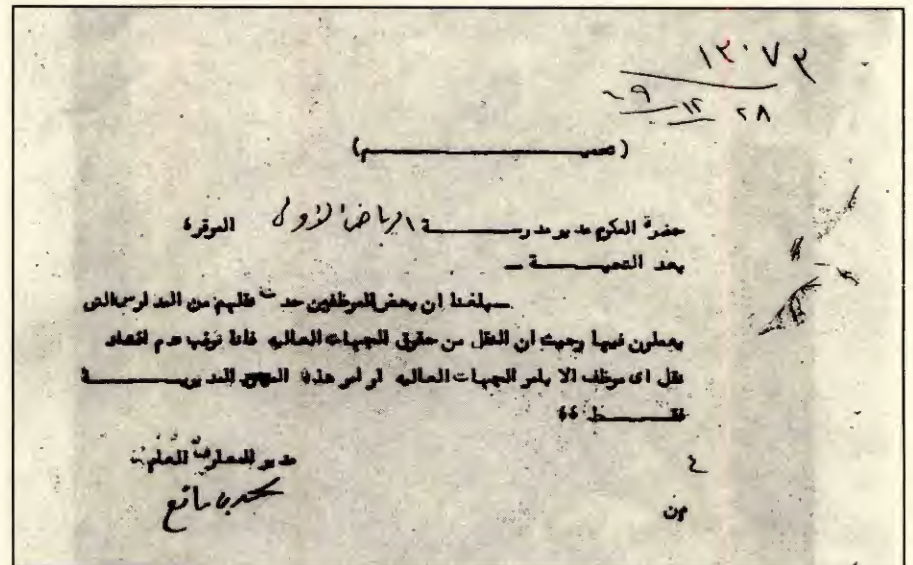 ١٣٠٧٣
٢٨ ١٢ ٦٩
(تعميم)
حضرة المكرم مدير مدرسة الرياض الأولى الموقرة
بعد التحية ــ
بلغنا ان بعض الموظفين حدث نقلهم من المدارس التى
يعملون فيها وحيث ان النقل من حقوق الجهات العاليه فانا نرغب عدم اعتماد
نقل اى موظف الا بامر الجهات العاليه او امر هذه المديرية
فقط ٤٤
مدير المعارف العام
محمد بن مانع
٤
ن